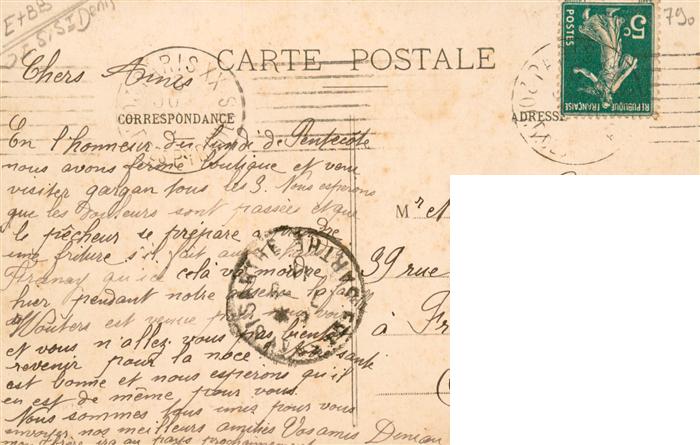 E+BB
790
CARTE POSTALE
5c
POSTES
REPUBLIQUE FRANÇAISE
PARIS XX
Chers Amis
CORRESPONDANCE
ADRESSE
En l'honneur du lundi de Pentecôte
nous avons fermé boutique et venu
visiter gargan tous les 3. Nous esperons
que les douleurs sont passées et que
le pêcheur se prépare a
une friture s'il fait au
qu'ici colà va mordre
hier pendant notre absence la
Wouters est venue
et vous n'allez pas bientôt
revenir pour la noce. santé
est bonne et nous esperons qu'il
en est de même pour vous.
Nous sommes tous unis pour vous
envoyer nos meilleurs amitiés Vos amis Denian
Mr
39 rue
à Fr
SARTHE